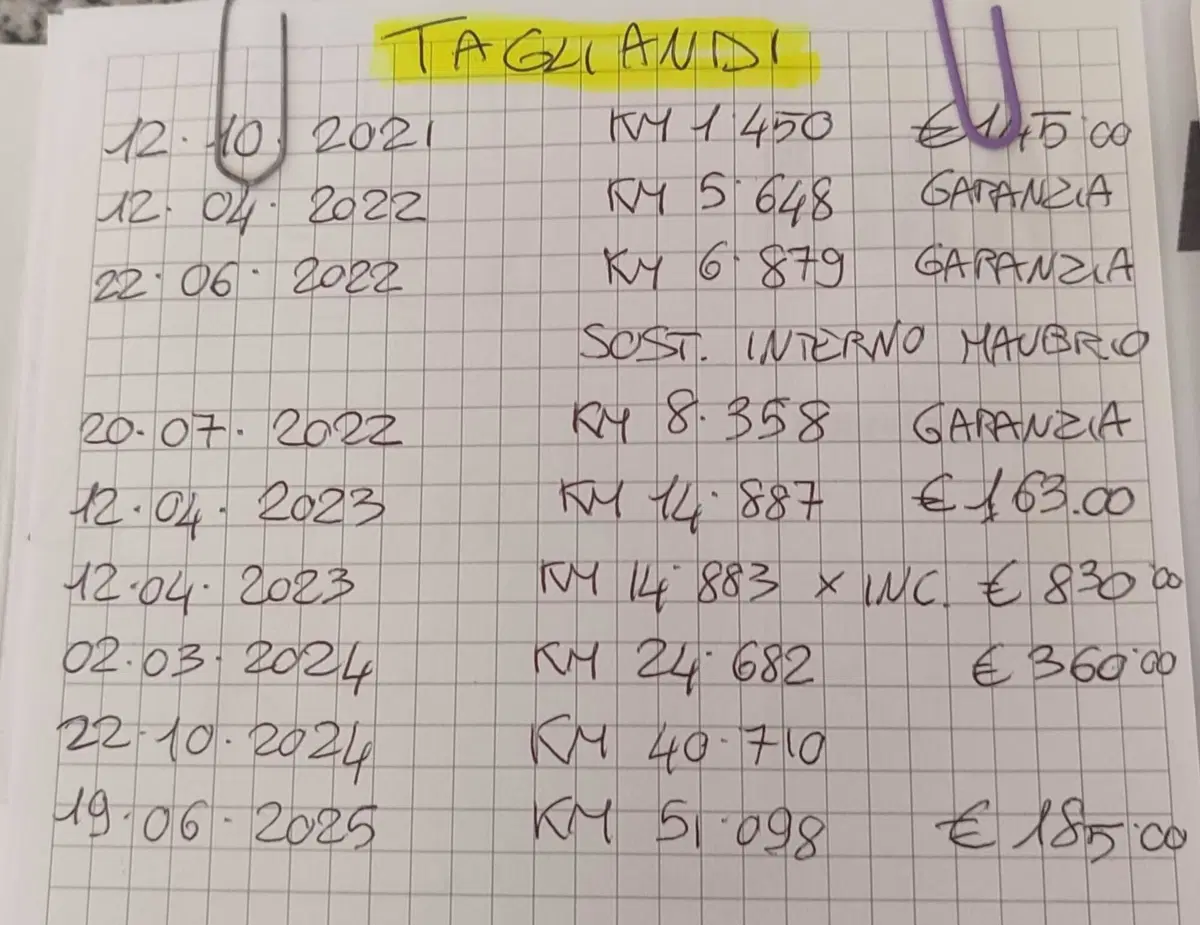 TAGLIANDI
12.10.2021 KM 1.450
12.04.2022 KM 5.648 GARANZIA
22.06.2022 KM 6.879 GARANZIA
SOST. INTERNO MAUBRIO
20.07.2022 KM 8.358 GARANZIA
12.04.2023 KM 14.887 € 163.00
12.04.2023 KM 14.883 x INC. € 830.00
02.03.2024 KM 24.682 € 360.00
22.10.2024 KM 40.710
19.06.2025 KM 51.098 € 185.00